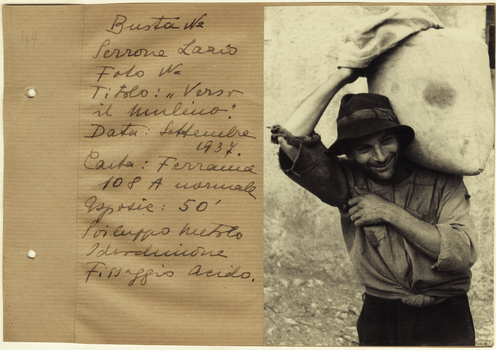 Busta Nº
Serrone Lazio
Foto Nº
Titolo: „Verso
il mulino".
Data: Settembre
1937.
Carta: Ferrania
108 A normale
Esposiz: 50'
Sviluppo metolo
Idrochinone
Fissaggio Acido.